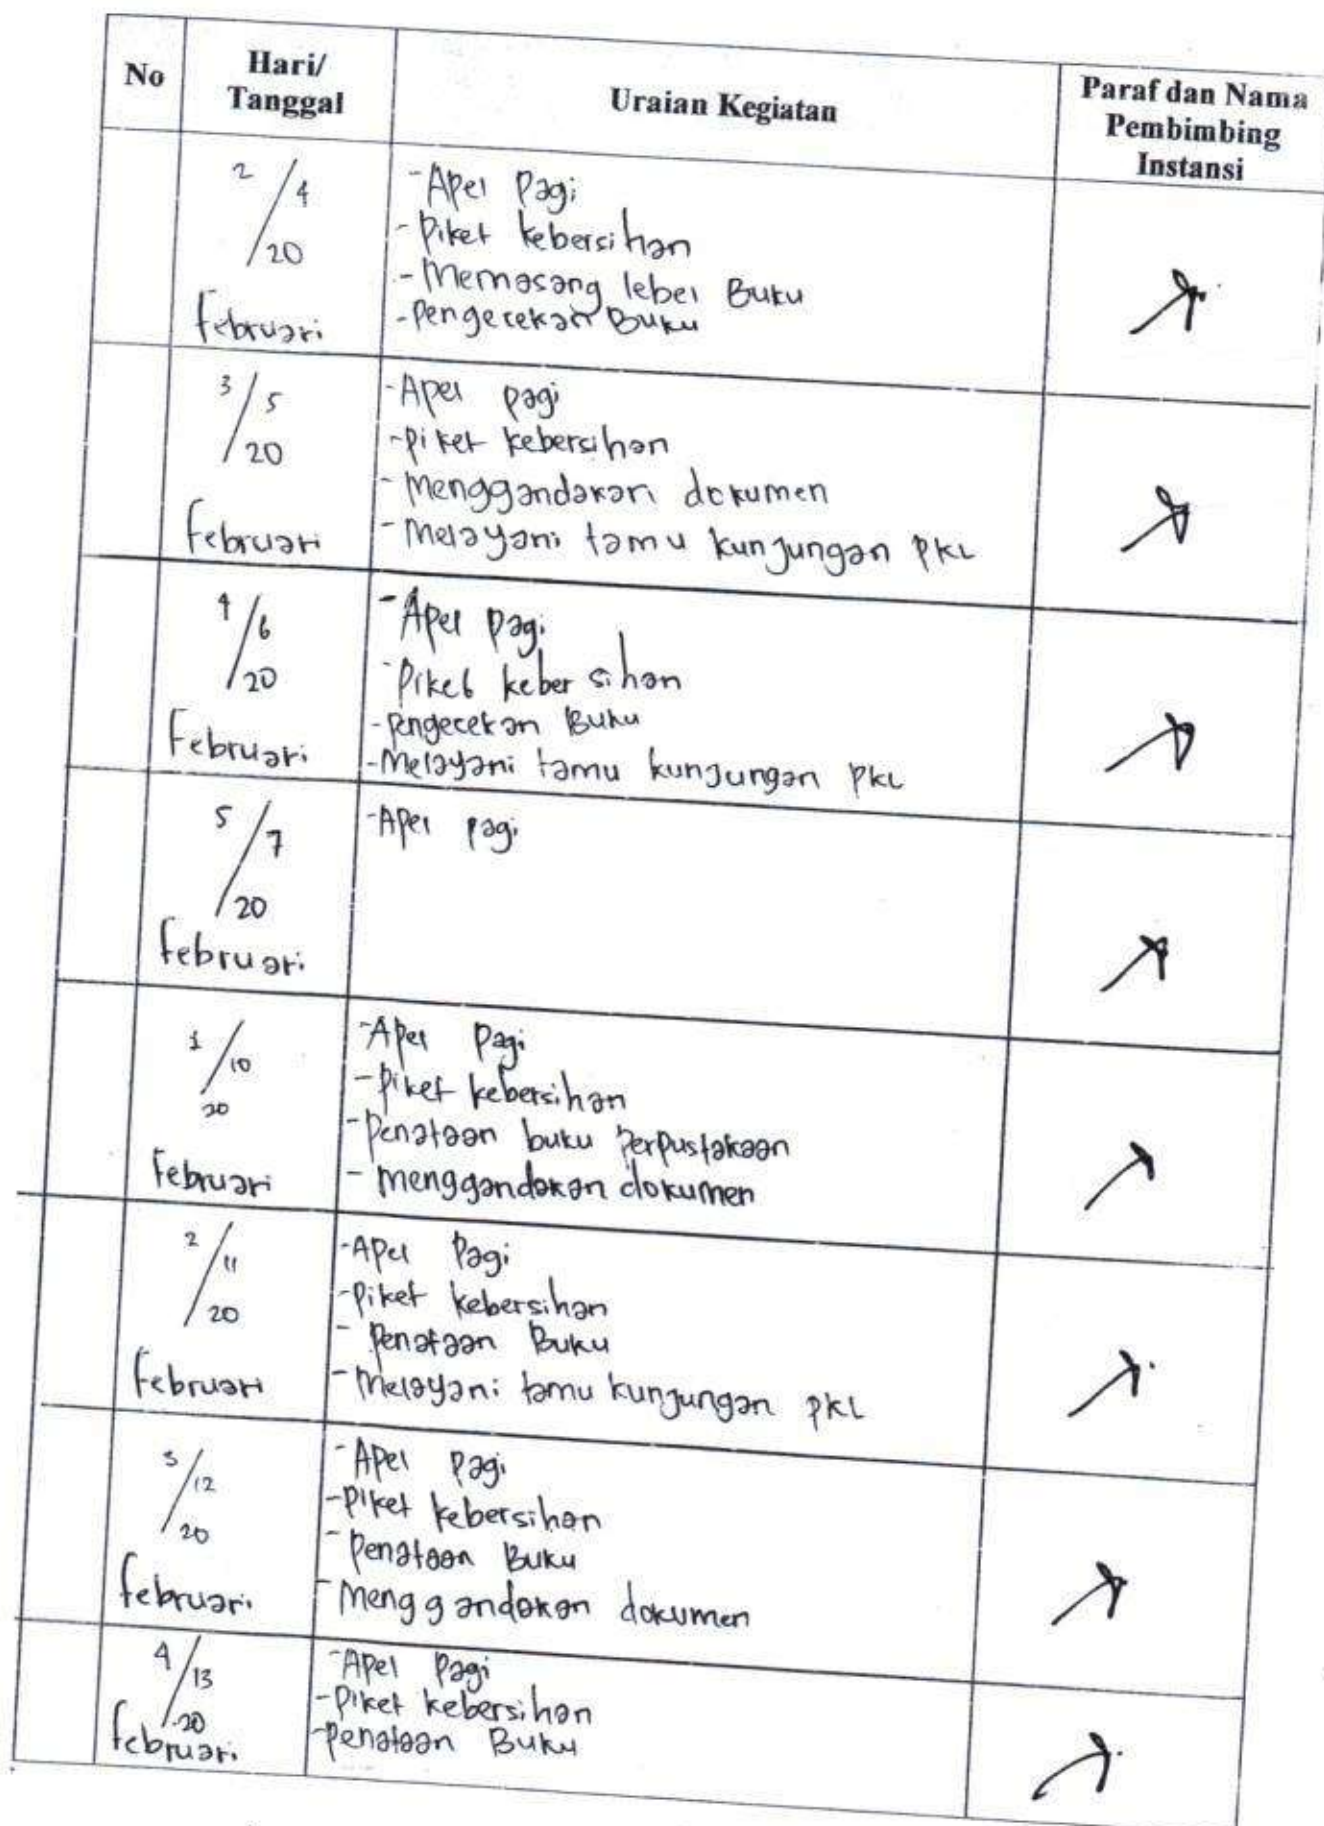 No
Hari/
Tanggal
Uraian Kegiatan
Paraf dan Nama
Pembimbing
Instansi
2/4
/20
februari
- Apel Pagi
- Piket kebersihan
- Memasang lebel Buku
- Pengecekan Buku
3/5
/20
februari
- Apel pagi
- piket kebersihan
- Menggandakan dokumen
- Melayani tamu kunjungan PKL
4/6
/20
Februari
- Apel pagi
- Piket kebersihan
- pengecekan Buku
- Melayani tamu kunjungan PKL
5/7
/20
februari
- Apel pagi
1/10
20
Februari
- Apel Pagi
- Piket kebersihan
- Penataan buku Perpustakaan
- menggandakan dokumen
2/11
/20
februari
- Apel Pagi
- Piket kebersihan
- Penataan Buku
- Melayani tamu kunjungan PKL
3/12
/20
februari
- Apel pagi
- piket kebersihan
- Penataan Buku
- Menggandakan dokumen
4/13
/20
februari
- Apel Pagi
- Piket kebersihan
- penataan Buku